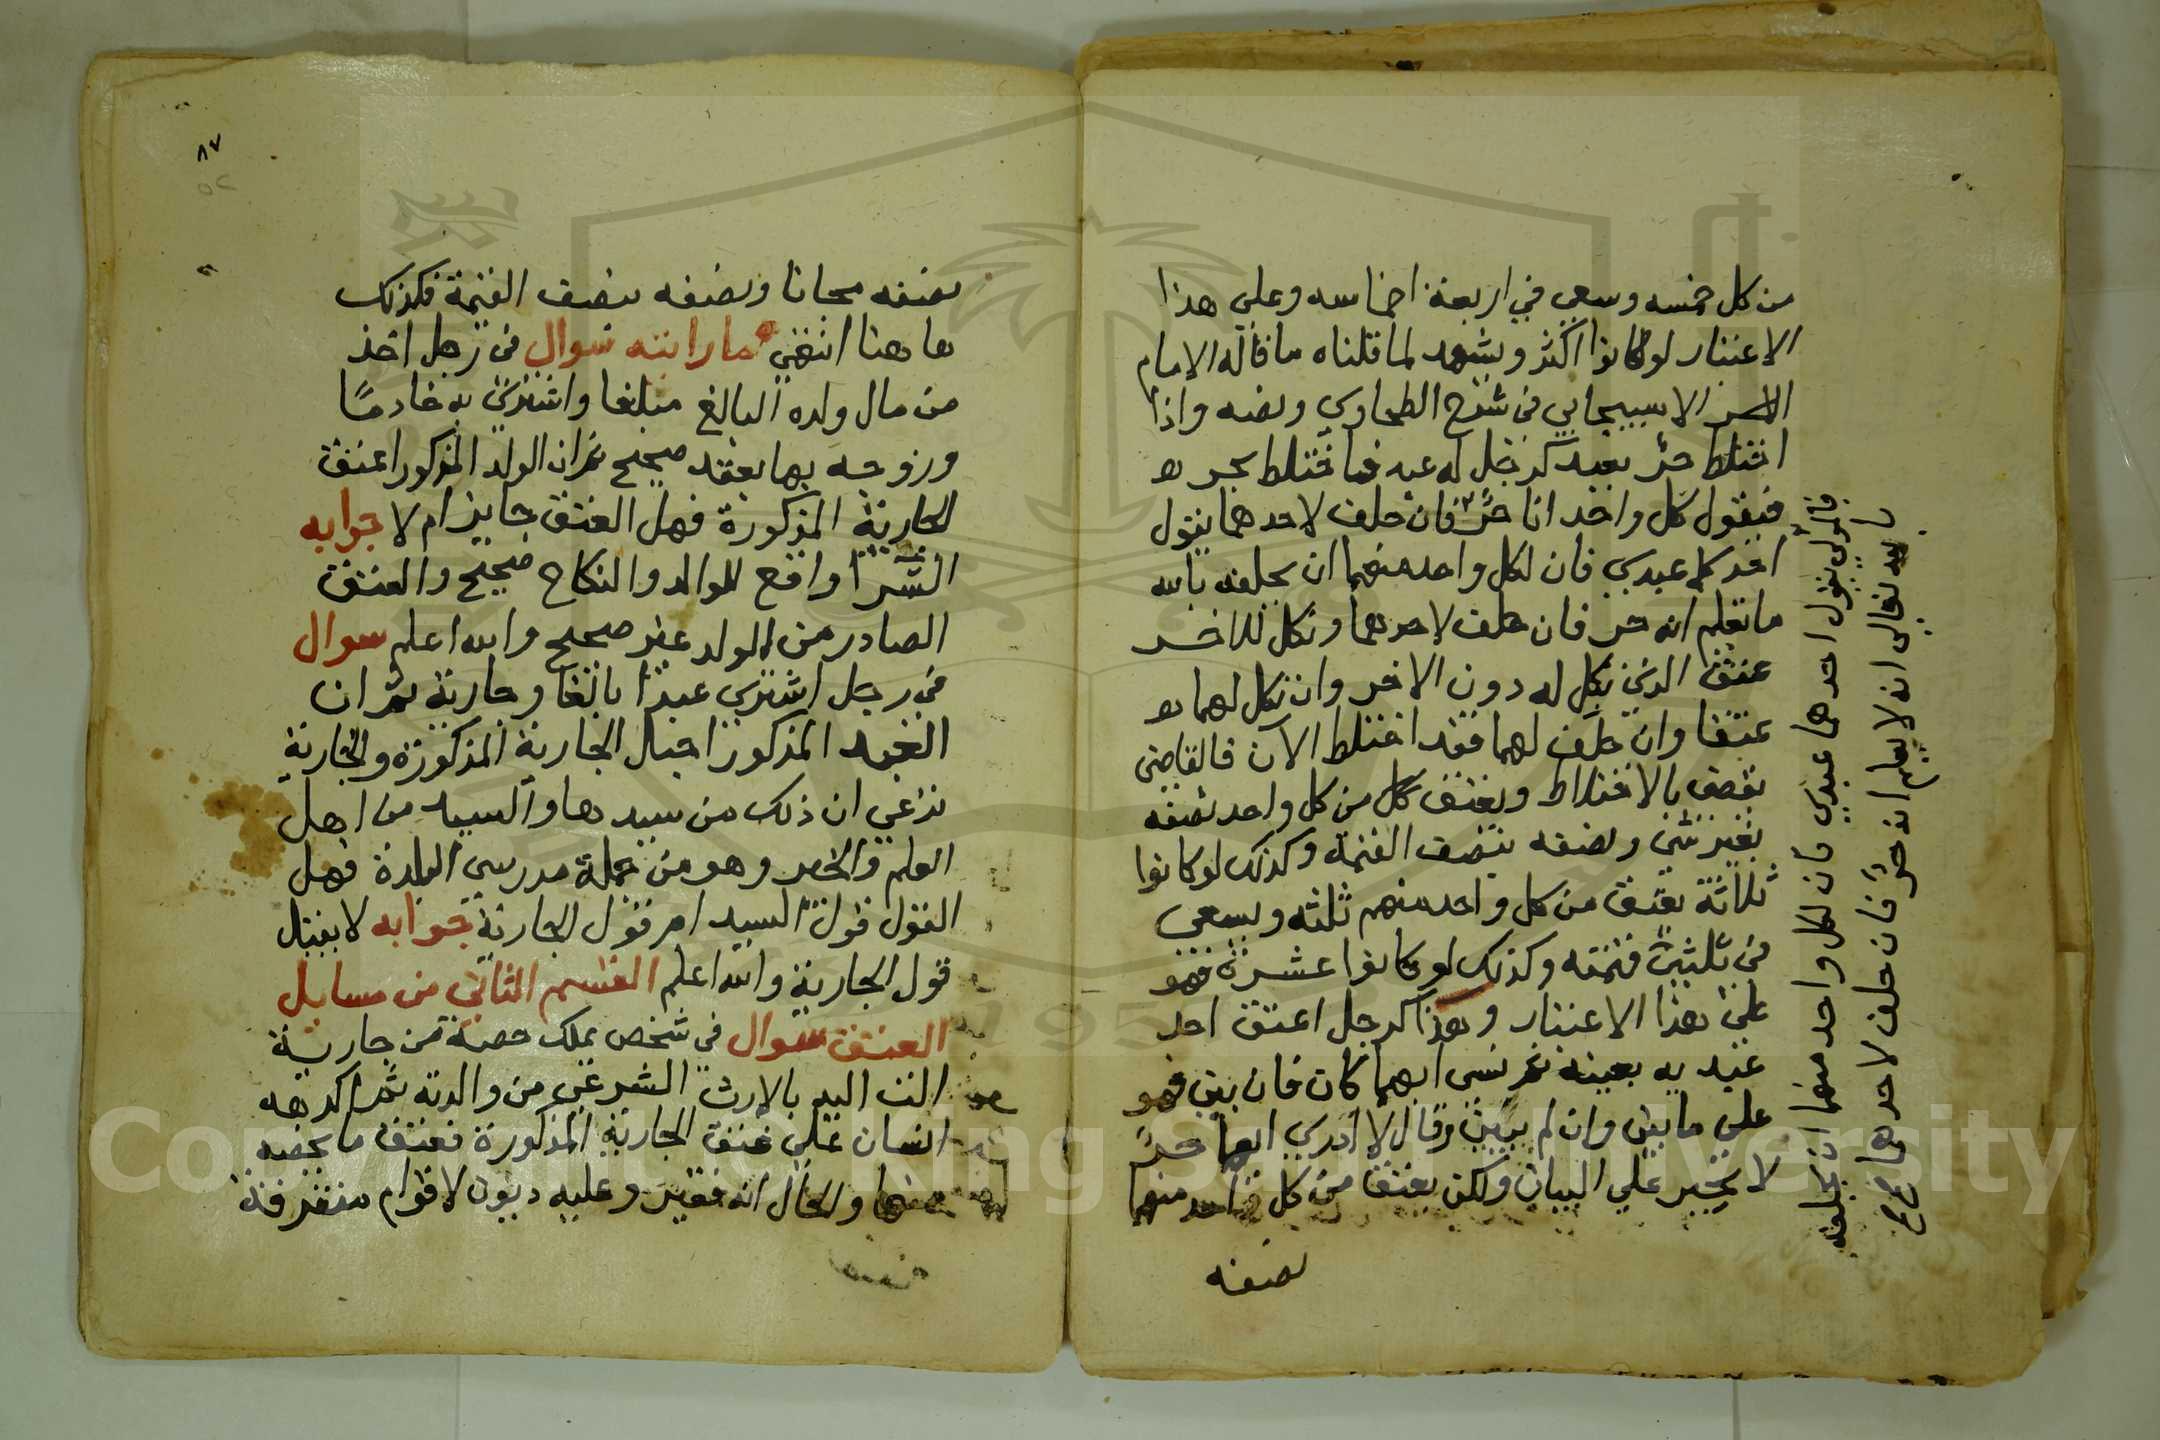 من كل خمسه وسعي في اربعة اخماسه وعلي هذا
الاعتبار لو كانوا اكثر ويشهد لما قلناه ما قاله الامام
الاسبيجابي في شرح الطحاوي ونصه واذا
اختلط حر بعبد كرجل له عبد فاختلط بحر
فيقول كل واحد انا حر فان حلف لاحدهما يقول
احدكما عبدي فان لكل واحد منهما ان يحلفه بالله
ما تعلم انه حر فان حلف لاحدهما ونكل للاخر
عتق الذي نكل له دون الاخر وان نكل لهما
عتقا وان حلف لهما فقد اختلط الان فالقاضي
يقضي بالاختلاط ويعتق كل من كل واحد نصفه
بغير شي ونصفه بنصف القيمة وكذلك لو كانوا
ثلاثة يعتق من كل واحد منهم ثلثه ويسعي
في ثلثي قيمته وكذلك لو كانوا عشرة فهو
علي هذا الاعتبار وهذا كرجل اعتق احد
عبديه بعينه ثم نسي ايهما كان فان بين فهو
علي ما بين وان لم يبين وقال لا ادري ايهما حر
لا يجبر علي البيان ولكن يعتق من كل واحد منهما
نصفه
فالمولي يقول احدهما عبدي فان لكل واحد منهما ان يحلفه
بالله تعالي انه لا يعلم انه حر فان حلف لاحدهما
٨٧
٥٢
نصفه مجانا ونصفه بنصف القيمة فكذلك
هاهنا انتهي ما رايته سوال في رجل اخذ
من مال ولده البالغ مبلغا واشتري به خادمًا
وزوجه بها بعقد صحيح ثم ان الولد المذكور اعتق
الجارية المذكورة فهل العتق جايز ام لا جوابه
الشرا واقع للوالد والنكاح صحيح والعتق
الصادر من الولد غير صحيح والله اعلم سوال
في رجل اشتري عبدا بالغا وجارية ثم ان
العبد المذكور احبل الجارية المذكورة والجارية
تدعي ان ذلك من سيدها والسيد من اهل
العلم والخير وهو من جملة مدرسي البلدة فهل
القول قول السيد ام قول الجارية جوابه لا يقبل
قول الجارية والله اعلم القسم الثاني من مسايل
العتق سوال في شخص يملك حصة من جارية
الت اليه بالارث الشرعي من والدته ثم اكرهه
انسان علي عتق الجارية المذكورة فعتق ما يخصه
منها والحال انه فقير وعليه ديون لاقوام متفرقة
Copyright © King Saud University
195